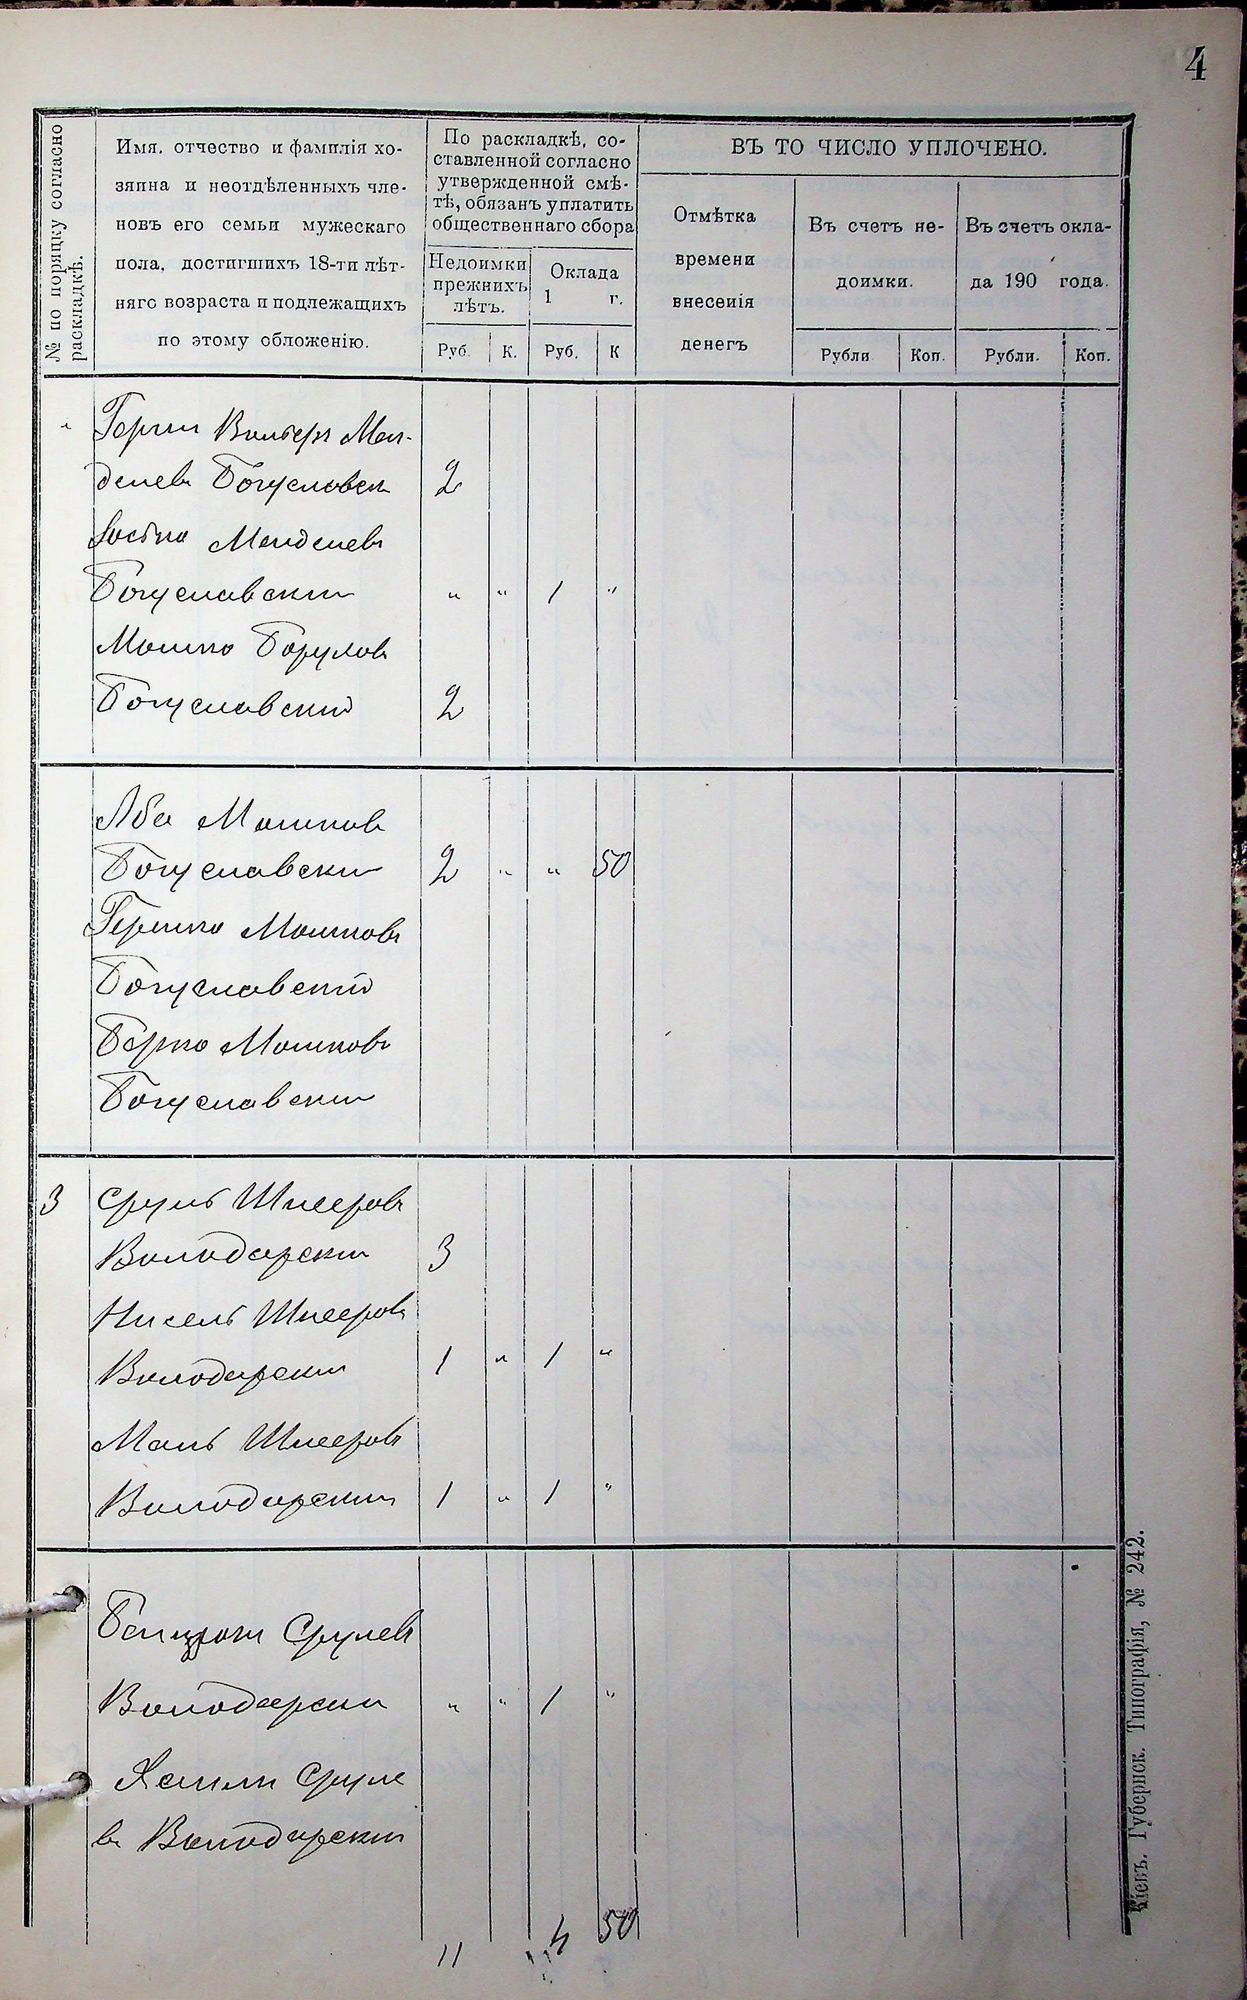 4
№ по порядку согласно
раскладкѣ.
Имя, отчество и фамилія хо-
зяина и неотдѣленныхъ чле-
новъ его семьи мужескаго
пола, достигшихъ 18-ти лѣт-
няго возраста и подлежащихъ
по этому обложенію.
По раскладкѣ, со-
ставленной согласно
утвержденной смѣ-
тѣ, обязанъ уплатить
общественнаго сбора
Недоимки
прежнихъ
лѣтъ.
Оклада
1 г.
Руб. К. Руб. К
ВЪ ТО ЧИСЛО УПЛОЧЕНО.
Отмѣтка
времени
внесенія
денегъ
Въ счетъ не-
доимки.
Въ счетъ окла-
да 190 года.
Рубли Коп. Рубли. Коп.
Герш Вольберъ Мен-
делевъ Богуславск 2
Иосько Менделевъ
Богуславскій " " 1 "
Мошко Борухов
Богуславскій 2
Аба Мошков
Богуславскій 2 " " 50
Гершко Мошковъ
Богуславскій
Берко Мошковъ
Богуславскій
3 Сруль Шмееровъ
Володарскій 3
Нисель Шмееровъ
Володарскій 1 " 1 "
Шмееровъ
Володарскій 1 " 1 "
Бенционъ Срулевъ
Володарскій " " 1 "
Хаимъ Сруле
въ Володарскій
11 4 50
Кіевъ. Губернск. Типографія, № 242.